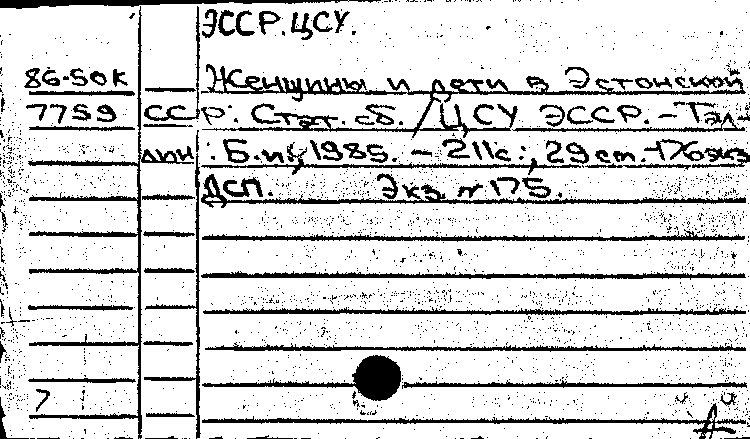 ЭССР. ЦСУ.
86-50к Женщины и дети в Эстонской
7759 ССР: Стат. сб. / ЦСУ ЭССР. - Тал-
лин: Б.и., 1985. - 211с.; 29 см. - 176 экз
ДСП. Экз № 175.
7